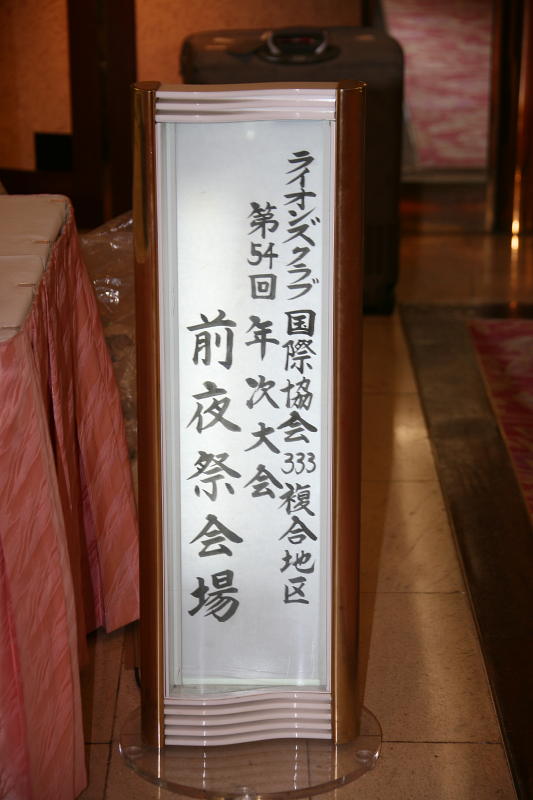 ライオンズクラブ国際協会333複合地区
第54回年次大会
前夜祭会場